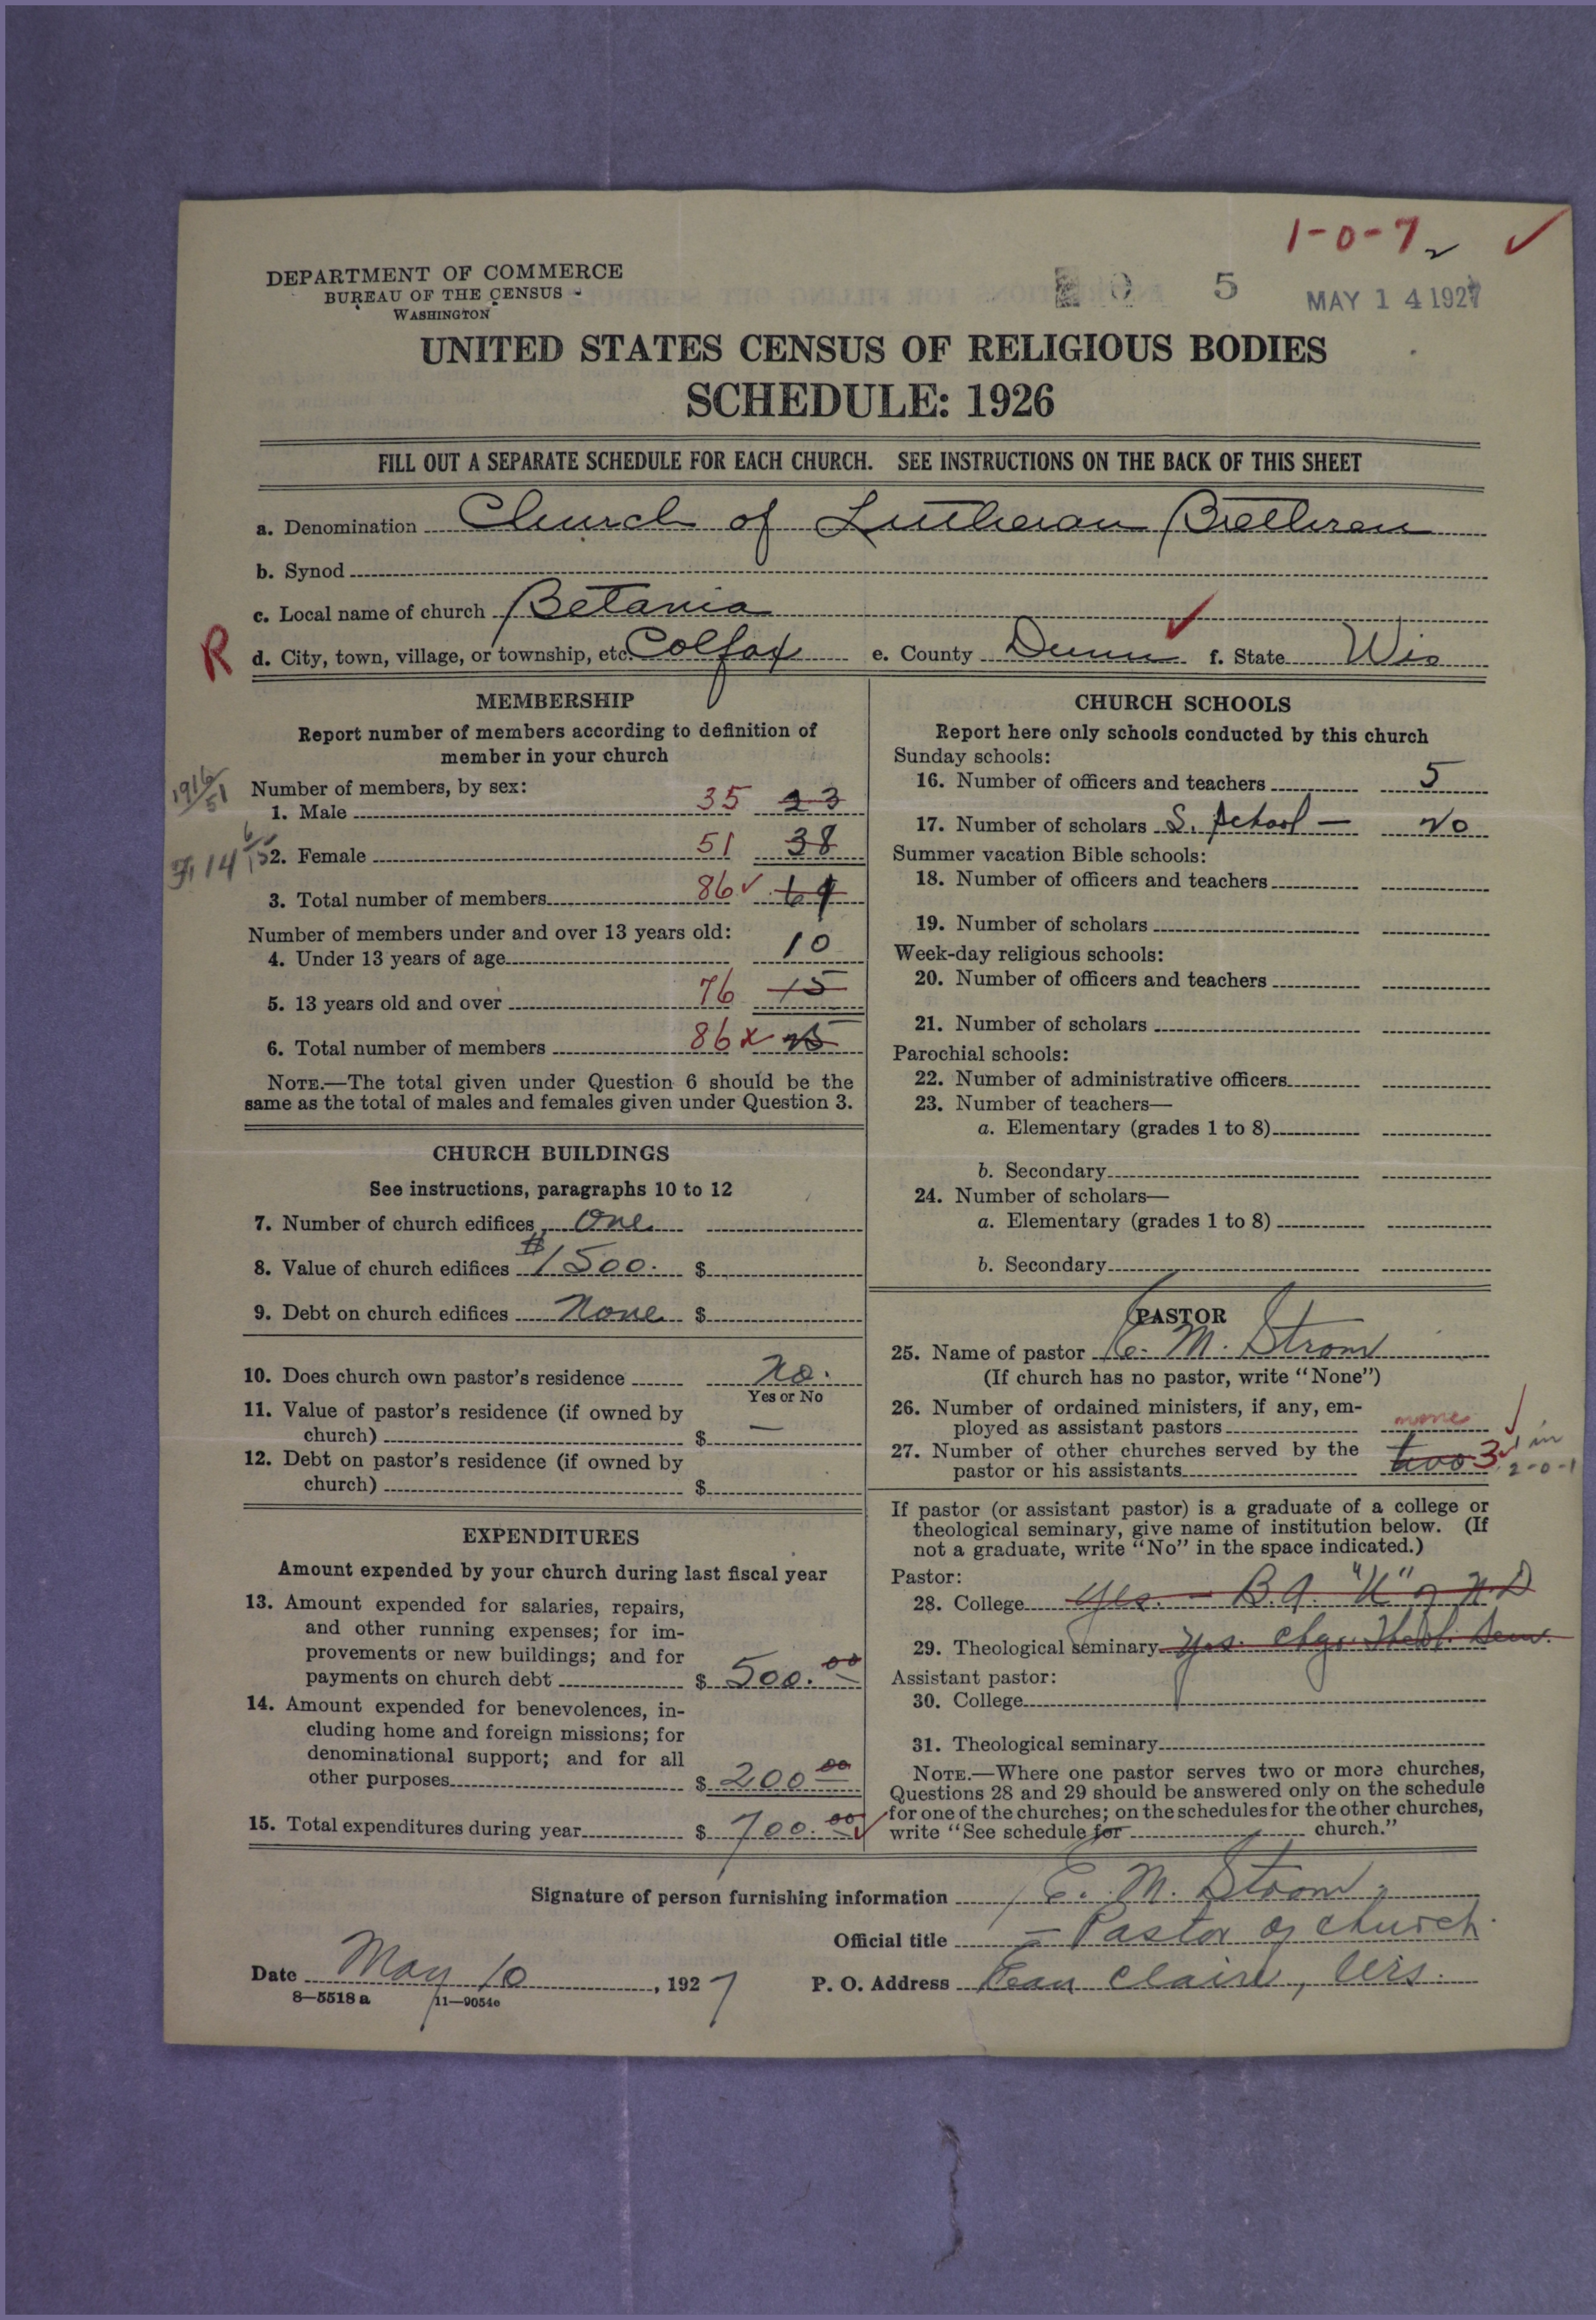 1-0-7
DEPARTMENT OF COMMERCE
BUREAU OF THE CENSUS
WASHINGTON
0 5 MAY 14 1927
UNITED STATES CENSUS OF RELIGIOUS BODIES
SCHEDULE: 1926
FILL OUT A SEPARATE SCHEDULE FOR EACH CHURCH. SEE INSTRUCTIONS ON THE BACK OF THIS SHEET
a. Denomination Church of Lutheran Brethren
b. Synod
c. Local name of church Betania
R d. City, town, village, or township, etc. Colfax e. County Dunn f. State Wis
MEMBERSHIP
Report number of members according to definition of
member in your church
1916/51
Number of members, by sex:
1. Male 35 23
2. Female 51 38
3. Total number of members 86 ✓ 61
Number of members under and over 13 years old:
4. Under 13 years of age 10
5. 13 years old and over 76 15
6. Total number of members 86 x 25
NOTE.—The total given under Question 6 should be the
same as the total of males and females given under Question 3.
CHURCH BUILDINGS
See instructions, paragraphs 10 to 12
7. Number of church edifices One
8. Value of church edifices $1500. $
9. Debt on church edifices None $
10. Does church own pastor's residence No.
Yes or No
11. Value of pastor's residence (if owned by
church) $ —
12. Debt on pastor's residence (if owned by
church) $
EXPENDITURES
Amount expended by your church during last fiscal year
13. Amount expended for salaries, repairs,
and other running expenses; for im-
provements or new buildings; and for
payments on church debt $ 500.00
14. Amount expended for benevolences, in-
cluding home and foreign missions; for
denominational support; and for all
other purposes $ 200 00
15. Total expenditures during year $ 700.00
CHURCH SCHOOLS
Report here only schools conducted by this church
Sunday schools:
16. Number of officers and teachers 5
17. Number of scholars S. School — No
Summer vacation Bible schools:
18. Number of officers and teachers
19. Number of scholars
Week-day religious schools:
20. Number of officers and teachers
21. Number of scholars
Parochial schools:
22. Number of administrative officers
23. Number of teachers—
a. Elementary (grades 1 to 8)
b. Secondary
24. Number of scholars—
a. Elementary (grades 1 to 8)
b. Secondary
PASTOR
25. Name of pastor E. M. Strom
(If church has no pastor, write "None")
26. Number of ordained ministers, if any, em-
ployed as assistant pastors none
27. Number of other churches served by the
pastor or his assistants two 3 ✓ 1 in 2-0-1
If pastor (or assistant pastor) is a graduate of a college or
theological seminary, give name of institution below. (If
not a graduate, write "No" in the space indicated.)
Pastor:
28. College Yes. — B.A. "U" of N.D
29. Theological seminary Yes. Chgo. Theol. Sem.
Assistant pastor:
30. College
31. Theological seminary
NOTE.—Where one pastor serves two or more churches,
Questions 28 and 29 should be answered only on the schedule
for one of the churches; on the schedules for the other churches,
write "See schedule for church."
Signature of person furnishing information E. M. Strom
Official title — Pastor of church.
Date May 10, 1927 P. O. Address Eau Claire, Wis.
8—5518 a 11—9054c